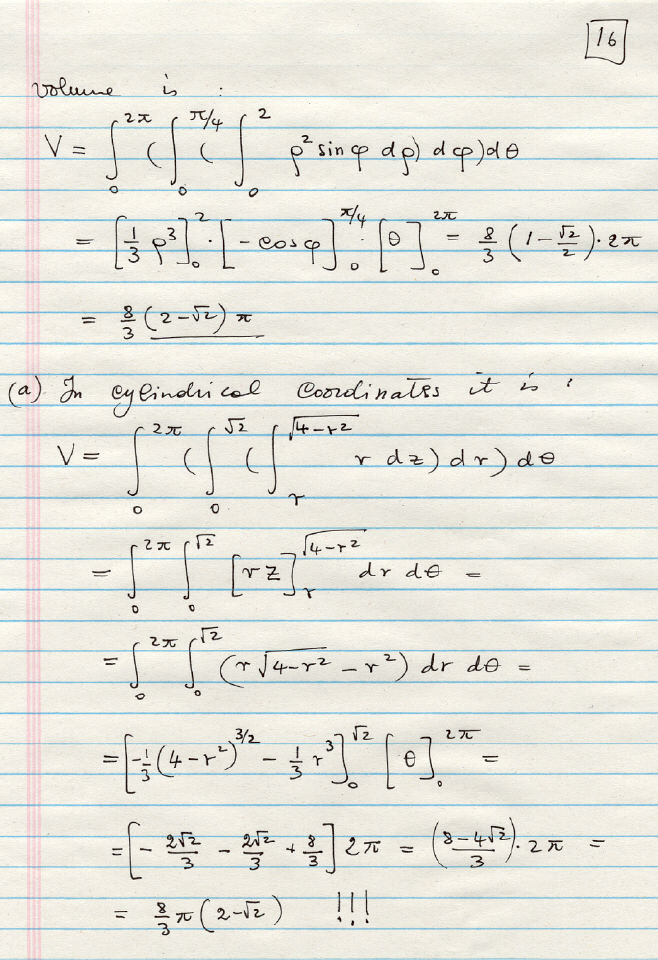 16
Volume is :
V = ∫₀^{2π} ( ∫₀^{π/4} ( ∫₀^{2} ρ² sin φ dρ) dφ) dθ
= [1/3 ρ³]₀² · [- cos φ]₀^{π/4} · [θ]₀^{2π} = 8/3 (1 - √2/2) · 2π
= 8/3 (2-√2) π
(a) In cylindrical coordinates it is :
V = ∫₀^{2π} ( ∫₀^{√2} ( ∫_r^{√(4-r²)} r dz) dr) dθ
= ∫₀^{2π} ∫₀^{√2} [rz]_r^{√(4-r²)} dr dθ =
= ∫₀^{2π} ∫₀^{√2} (r √(4-r²) - r²) dr dθ =
= [-1/3 (4-r²)^{3/2} - 1/3 r³]₀^{√2} [θ]₀^{2π} =
= [- 2√2/3 - 2√2/3 + 8/3] 2π = (8-4√2/3) · 2π =
= 8/3 π (2-√2) !!!